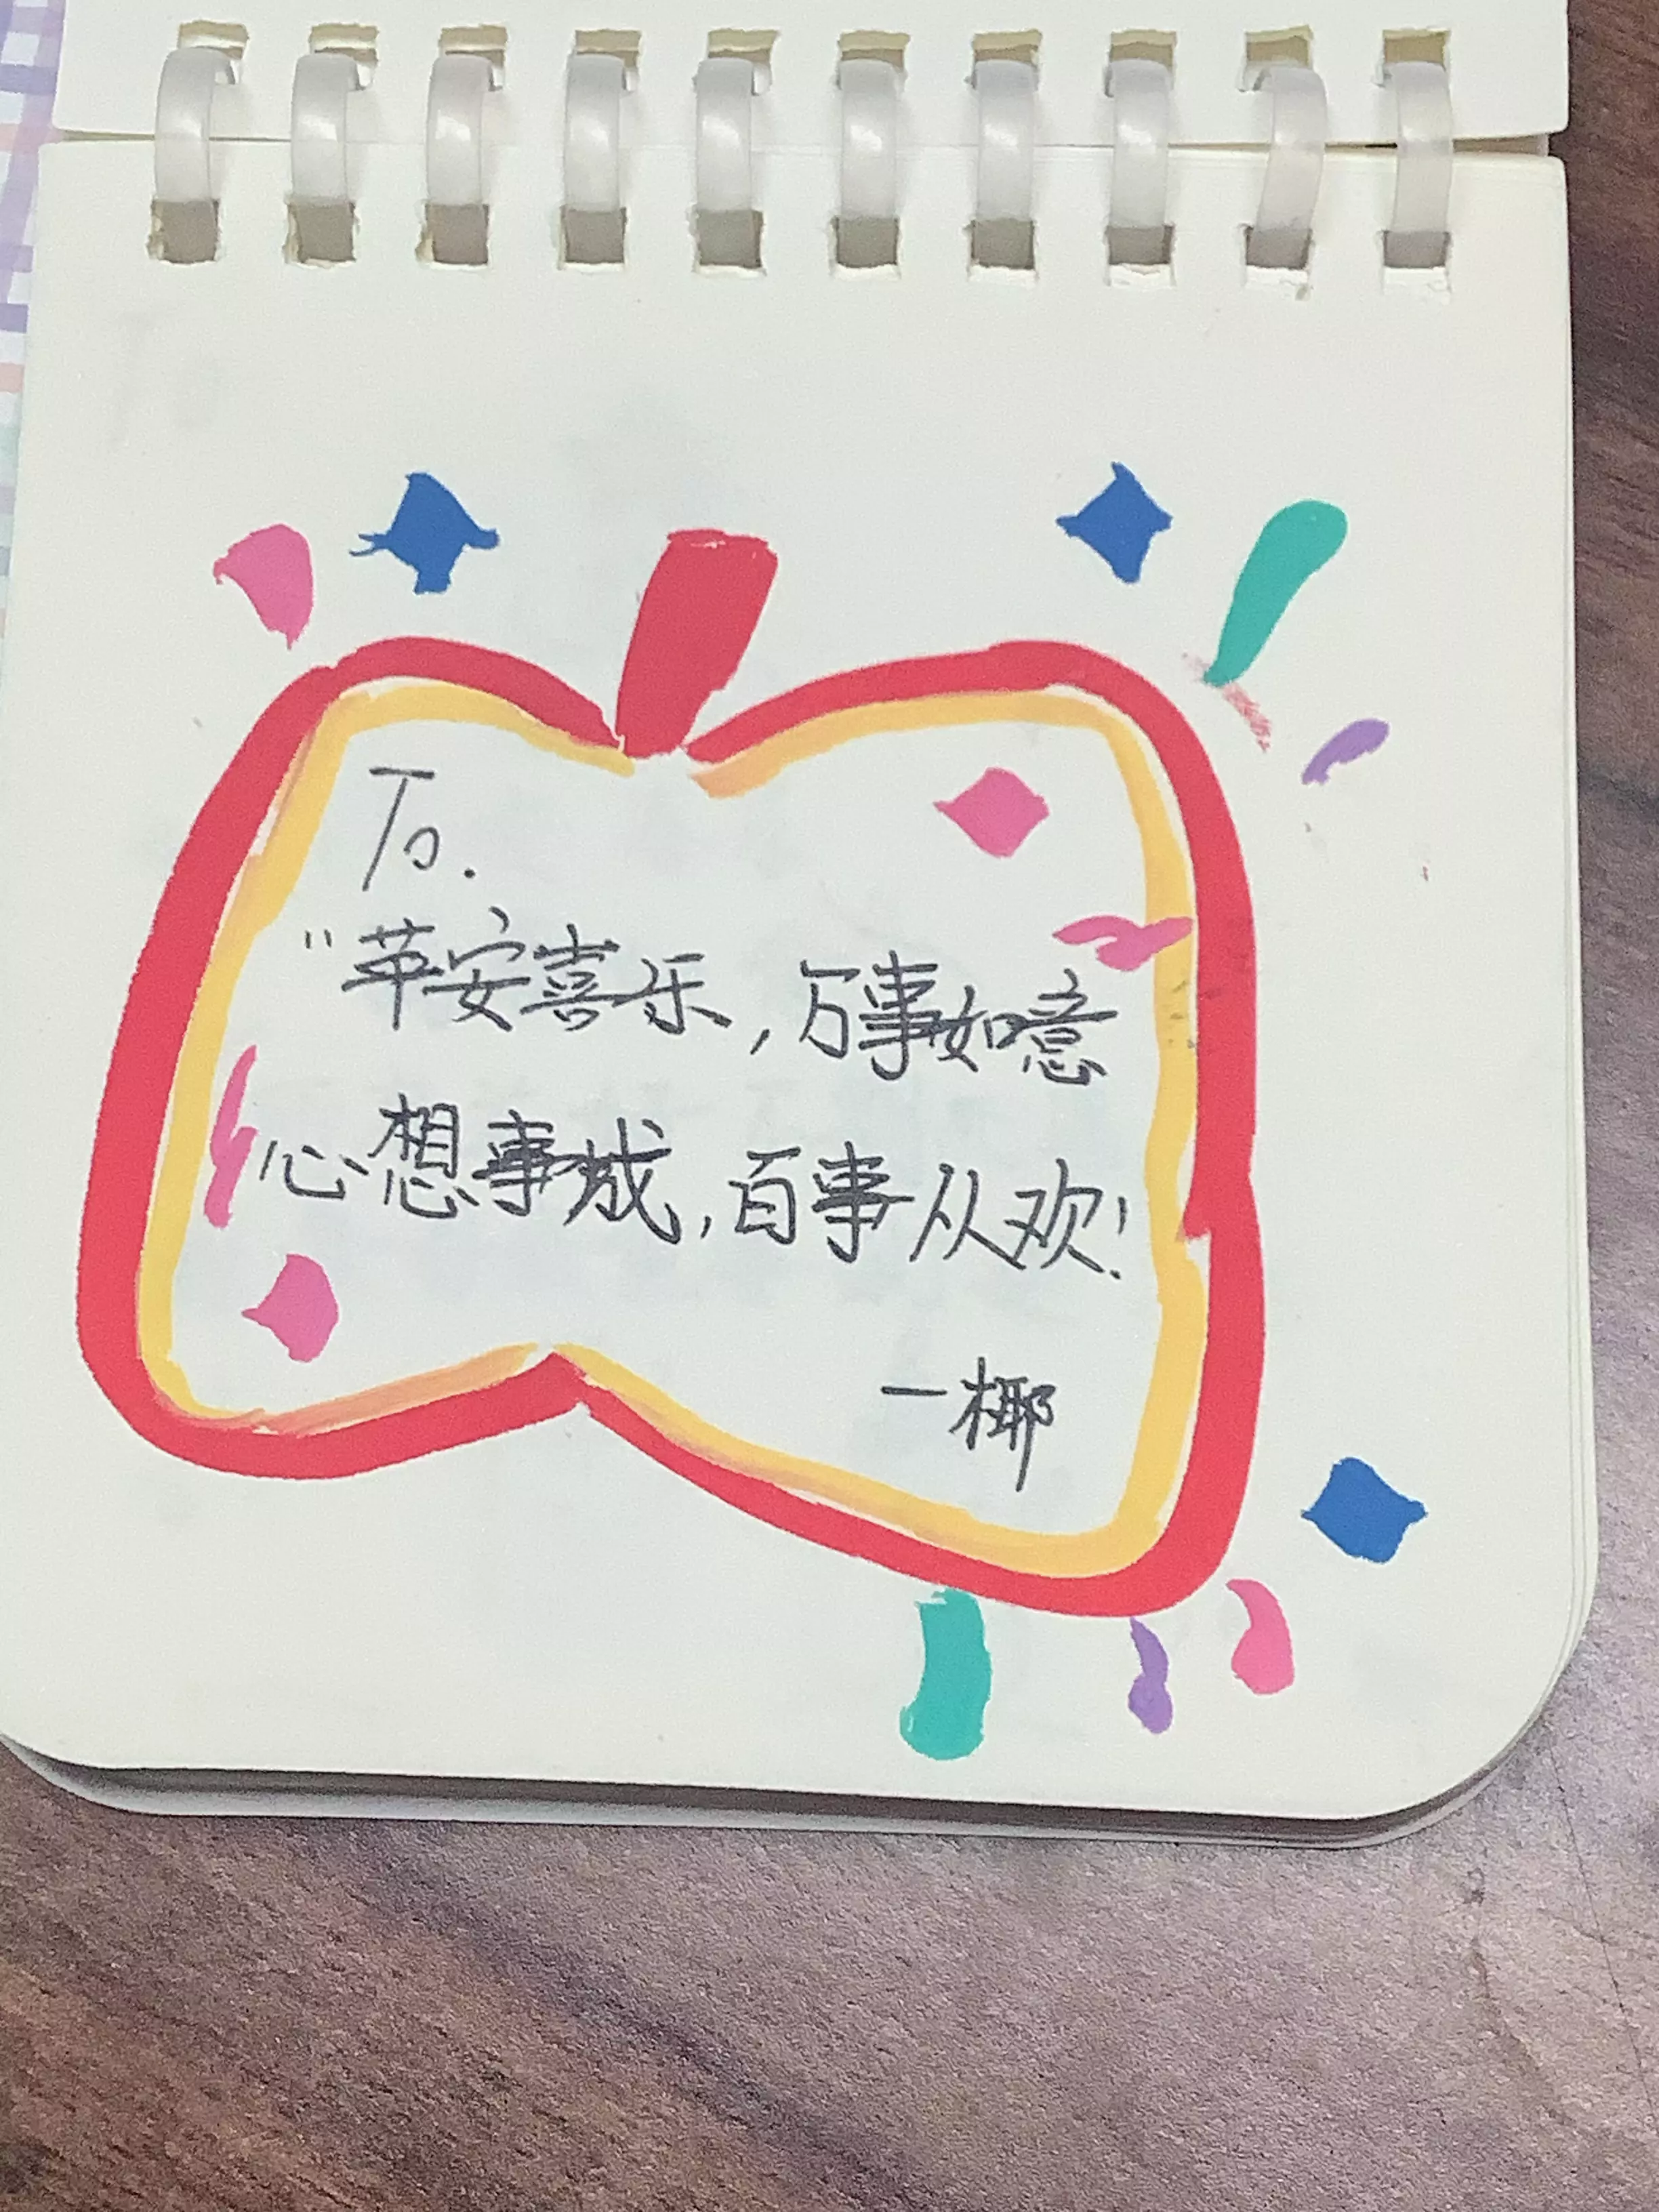 To.
"苹安喜乐,万事如意
心想事成,百事从欢!
一椰